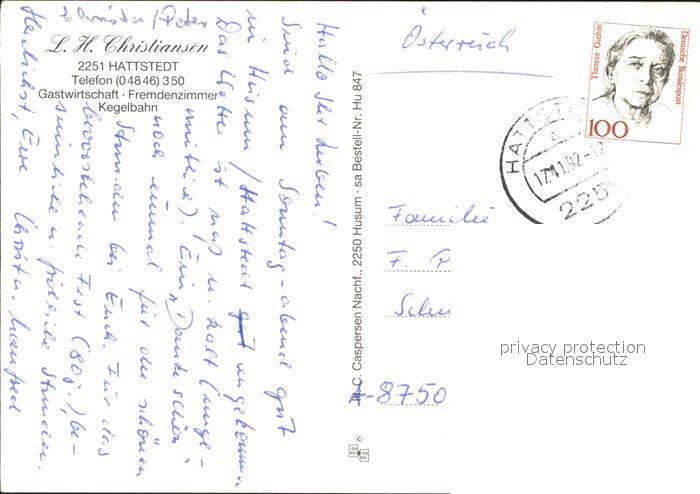 L. H. Christiansen
2251 HATTSTEDT
Telefon (04846) 350
Gastwirtschaft · Fremdenzimmer
Kegelbahn
Hallo Ihr Lieben!
Sind am Sonntag-abend gut
in Husum / Hattstedt gut angekommen
Das Wetter ist naß u. kalt (unge-
mütlich). Ein „Dankeschön"
noch einmal für die schönen
Stunden bei Euch. Für das
bevorstehende Fest (80j.) be-
sinnliche u. fröhliche Stunden.
Herzlichst, Eure Christa, Manfred
H. C. Caspersen Nachf., 2250 Husum · sa Bestell-Nr. Hu 847
Österreich
Therese Giehse
Deutsche Bundespost
100
HATTST
17.11.92-12
2251
Familie
F. P
Schu
A-8750
privacy protection
Datenschutz